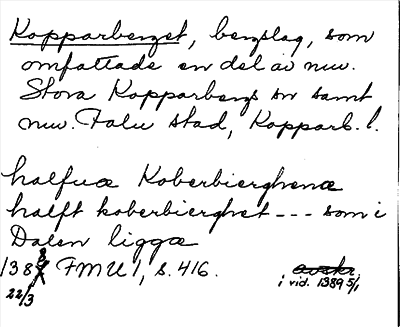 Kopparberget, bergslag, som
omfattade en del av nuv.
Stora Kopparbergs sn samt
nuv. Falu stad, Kopparb. l.
halfuæ Koberbierghenæ
halft koberbierghet --- som i
Dalen liggæ
1388 FMU 1, s. 416.
22/3
avskr.
i vid. 1389 5/1